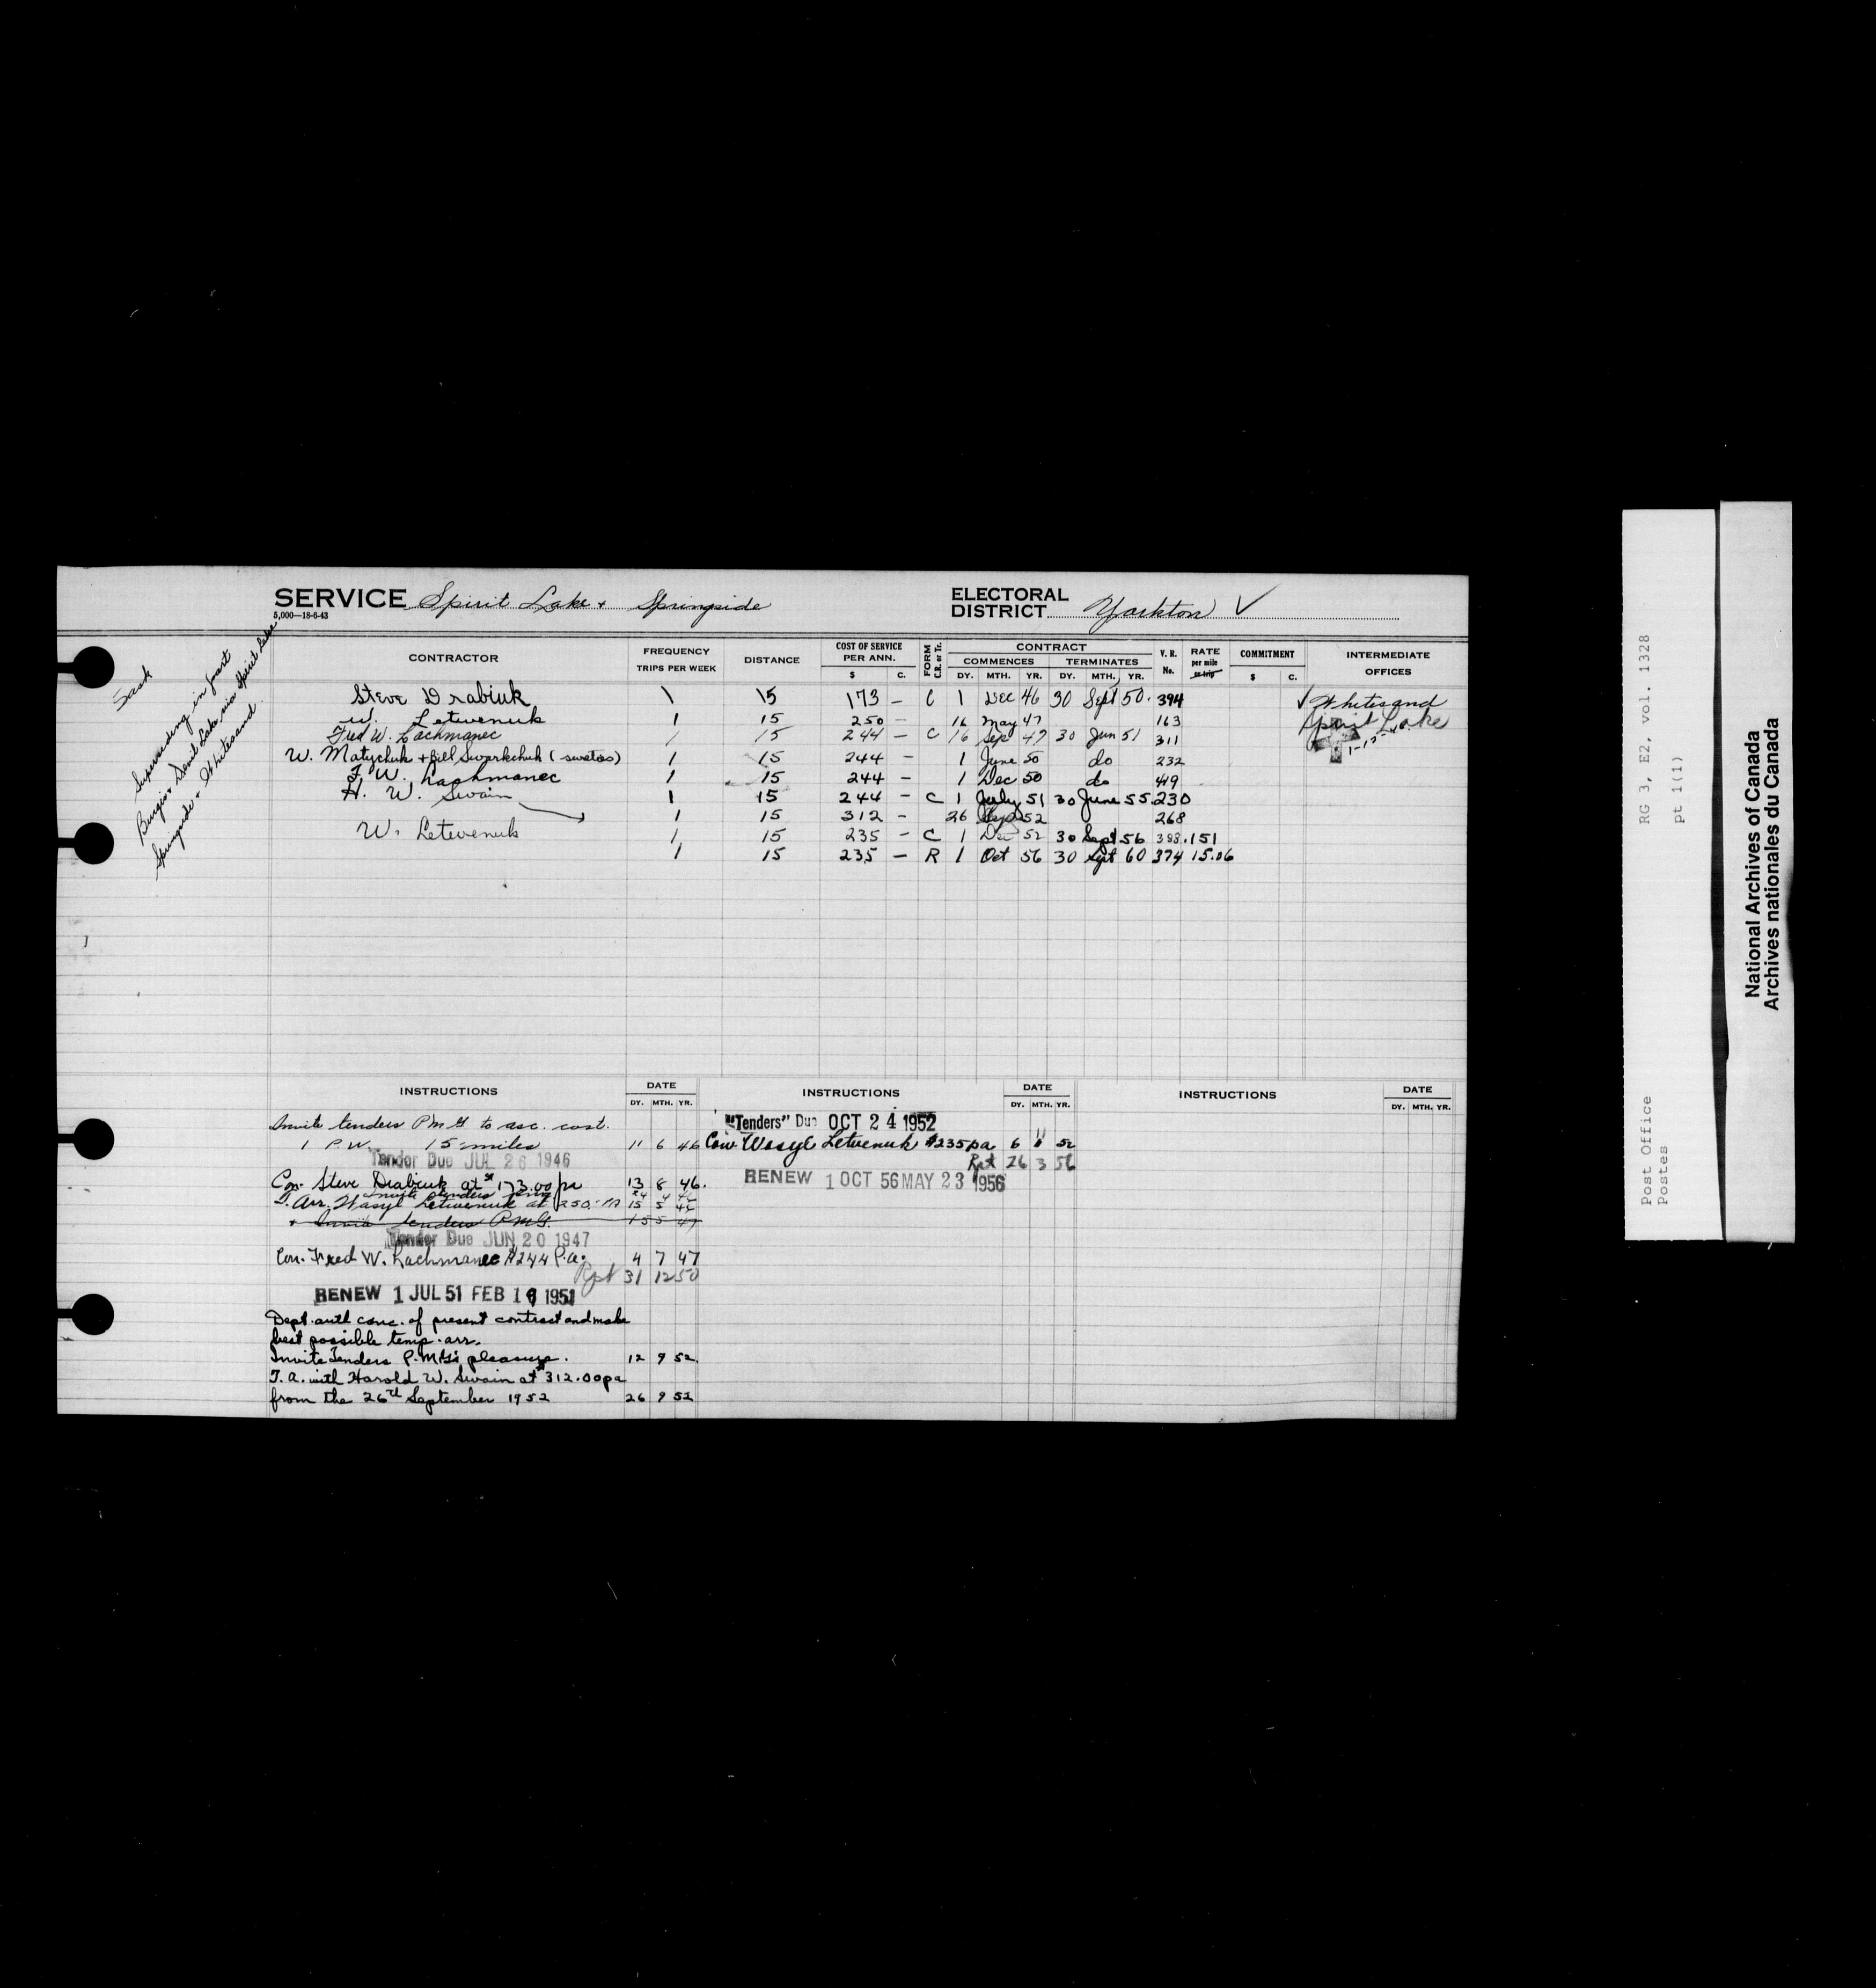 SERVICE Spirit Lake + Springside
5,000—18-6-43
ELECTORAL DISTRICT Yorkton ✓
Sask
Superseding in part
Burgis + Devil Lake via Spirit Lake
Springside + Whitesand
CONTRACTOR FREQUENCY TRIPS PER WEEK DISTANCE COST OF SERVICE PER ANN. $ C. FORM C.R. or Tr. CONTRACT COMMENCES DY. MTH. YR. TERMINATES DY. MTH. YR. V. R. No. RATE per mile or trip COMMITMENT $ C. INTERMEDIATE OFFICES
Steve Drabiuk 1 15 173 — C 1 Dec 46 30 Sept 50. 394 ✓ Whitesand
W. Letwenuk 1 15 250 — 16 May 47 163 Spirit Lake
Fred W. Lachmanec 1 15 244 — C 16 Sep 47 30 Jun 51 311 1-12-48
W. Matychuk + Bill Swarkchuk (sureties) 1 15 244 — 1 June 50 do 232
F. W. Lachmanec 1 15 244 — 1 Dec 50 do 419
H. W. Swain 1 15 244 — C 1 July 51 30 June 55 230
1 15 312 — 26 Sep 52 268
W. Letwenuk 1 15 235 — C 1 Dec 52 30 Sept 56 393 .151
1 15 235 — R 1 Oct 56 30 Sept 60 374 15.06
INSTRUCTIONS DATE DY. MTH. YR.
Invite tenders P M G to asc. cost.
1 P. W. 15 miles 11 6 46
Tender Due JUL 26 1946
Con. Steve Drabiuk at $173.00 pa 13 8 46.
Invite tenders
T. Arr. Wasyl Letwenuk at 250.- PA 15 5
+ Invite tenders P.M.G. 15 5 47
Tender Due JUN 20 1947
Con. Fred W. Lachmanec $244 P.a. 4 7 47
Rpt 31 12 50
RENEW 1 JUL 51 FEB 1 1951
Dept. auth canc. of present contract and make
best possible temp. arr.
Invite Tenders P.M.G's pleasure. 12 9 52.
T. A. with Harold W. Swain at $312.00 pa
from the 26th September 1952 26 9 52
INSTRUCTIONS DATE DY. MTH. YR.
"Tenders" Due OCT 24 1952
Con. Wasyl Letwenuk $235 pa 6 11 52
Rpt 26 3 56
RENEW 1 OCT 56 MAY 23 1956
INSTRUCTIONS DATE DY. MTH. YR.
Post Office
Postes
RG 3, E2, vol. 1328
pt 1(1)
National Archives of Canada
Archives nationales du Canada